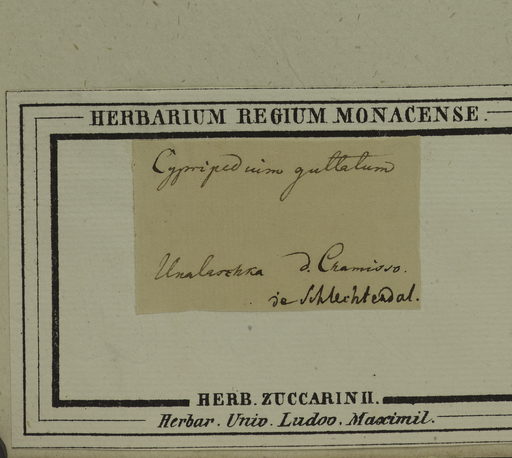 HERBARIUM REGIUM MONACENSE.
Cypripedium guttatum
Unalaschka d. Chamisso.
de Schlechtendal.
HERB. ZUCCARINII.
Herbar. Univ. Ludov. Maximil.